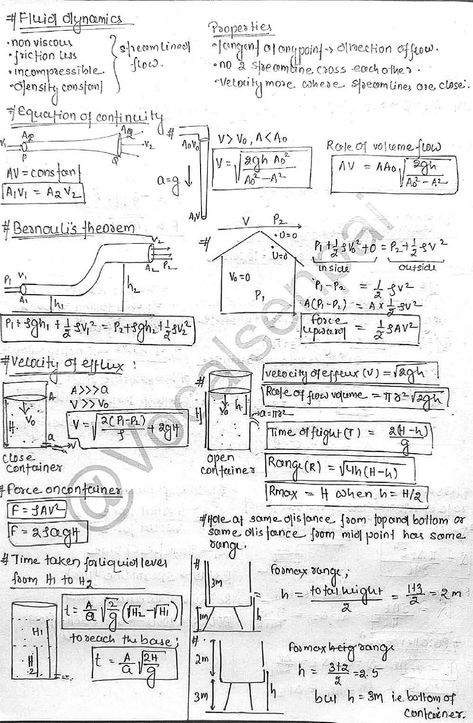 # Fluid dynamics
• non viscous
• friction less
• incompressible
• density constant
} streamlined flow.
Properties
• tangent at any point → direction of flow.
• no 2 streamline cross each other.
• velocity more where streamlines are close.
# Equation of continuity
AV = constant
A₁V₁ = A₂V₂
V > V₀, A < A₀
V = √(2gh A₀² / (A₀² - A²))
a = g
Rate of volume flow
AV = AA₀ √(2gh / (A₀² - A²))
# Bernouli's theorem
P₁ + ρgh₁ + ½ρv₁² = P₂ + ρgh₂ + ½ρv₂²
V P₂
V₀ = 0
P₁
P₁ + ½ρV₀² + 0 = P₂ + ½ρV²
inside outside
P₁ - P₂ = ½ρV²
A(P₁ - P₂) = A × ½ρV²
force upward = ½ρAV²
# Velocity of efflux :
A >>> a
V >> V₀
V = √(2(P₁-P₂)/ρ + 2gH)
close container
open container
velocity of efflux (V) = √2gh
Rate of flow volume = πr²√2gh
a = πr²
Time of flight (T) = √(2(H-h)/g)
Range (R) = √4h(H-h)
Rmax = H when h = H/2
# Force on container
F = ρAV²
F = 2ρagH
# Hole at same distance from top and bottom or
same distance from mid point has same
range.
# Time taken for liquid level
from H₁ to H₂
t = A/a √(2/g) (√H₂ - √H₁)
to reach the base;
t = A/a √(2H/g)
3m
1m
h
For max range;
h = total height / 2 = 1+3 / 2 = 2m
2m
3m
h
For max range
h = 3+2 / 2 = 2.5
but h = 3m i.e. bottom of
container
@Vocalsenpai